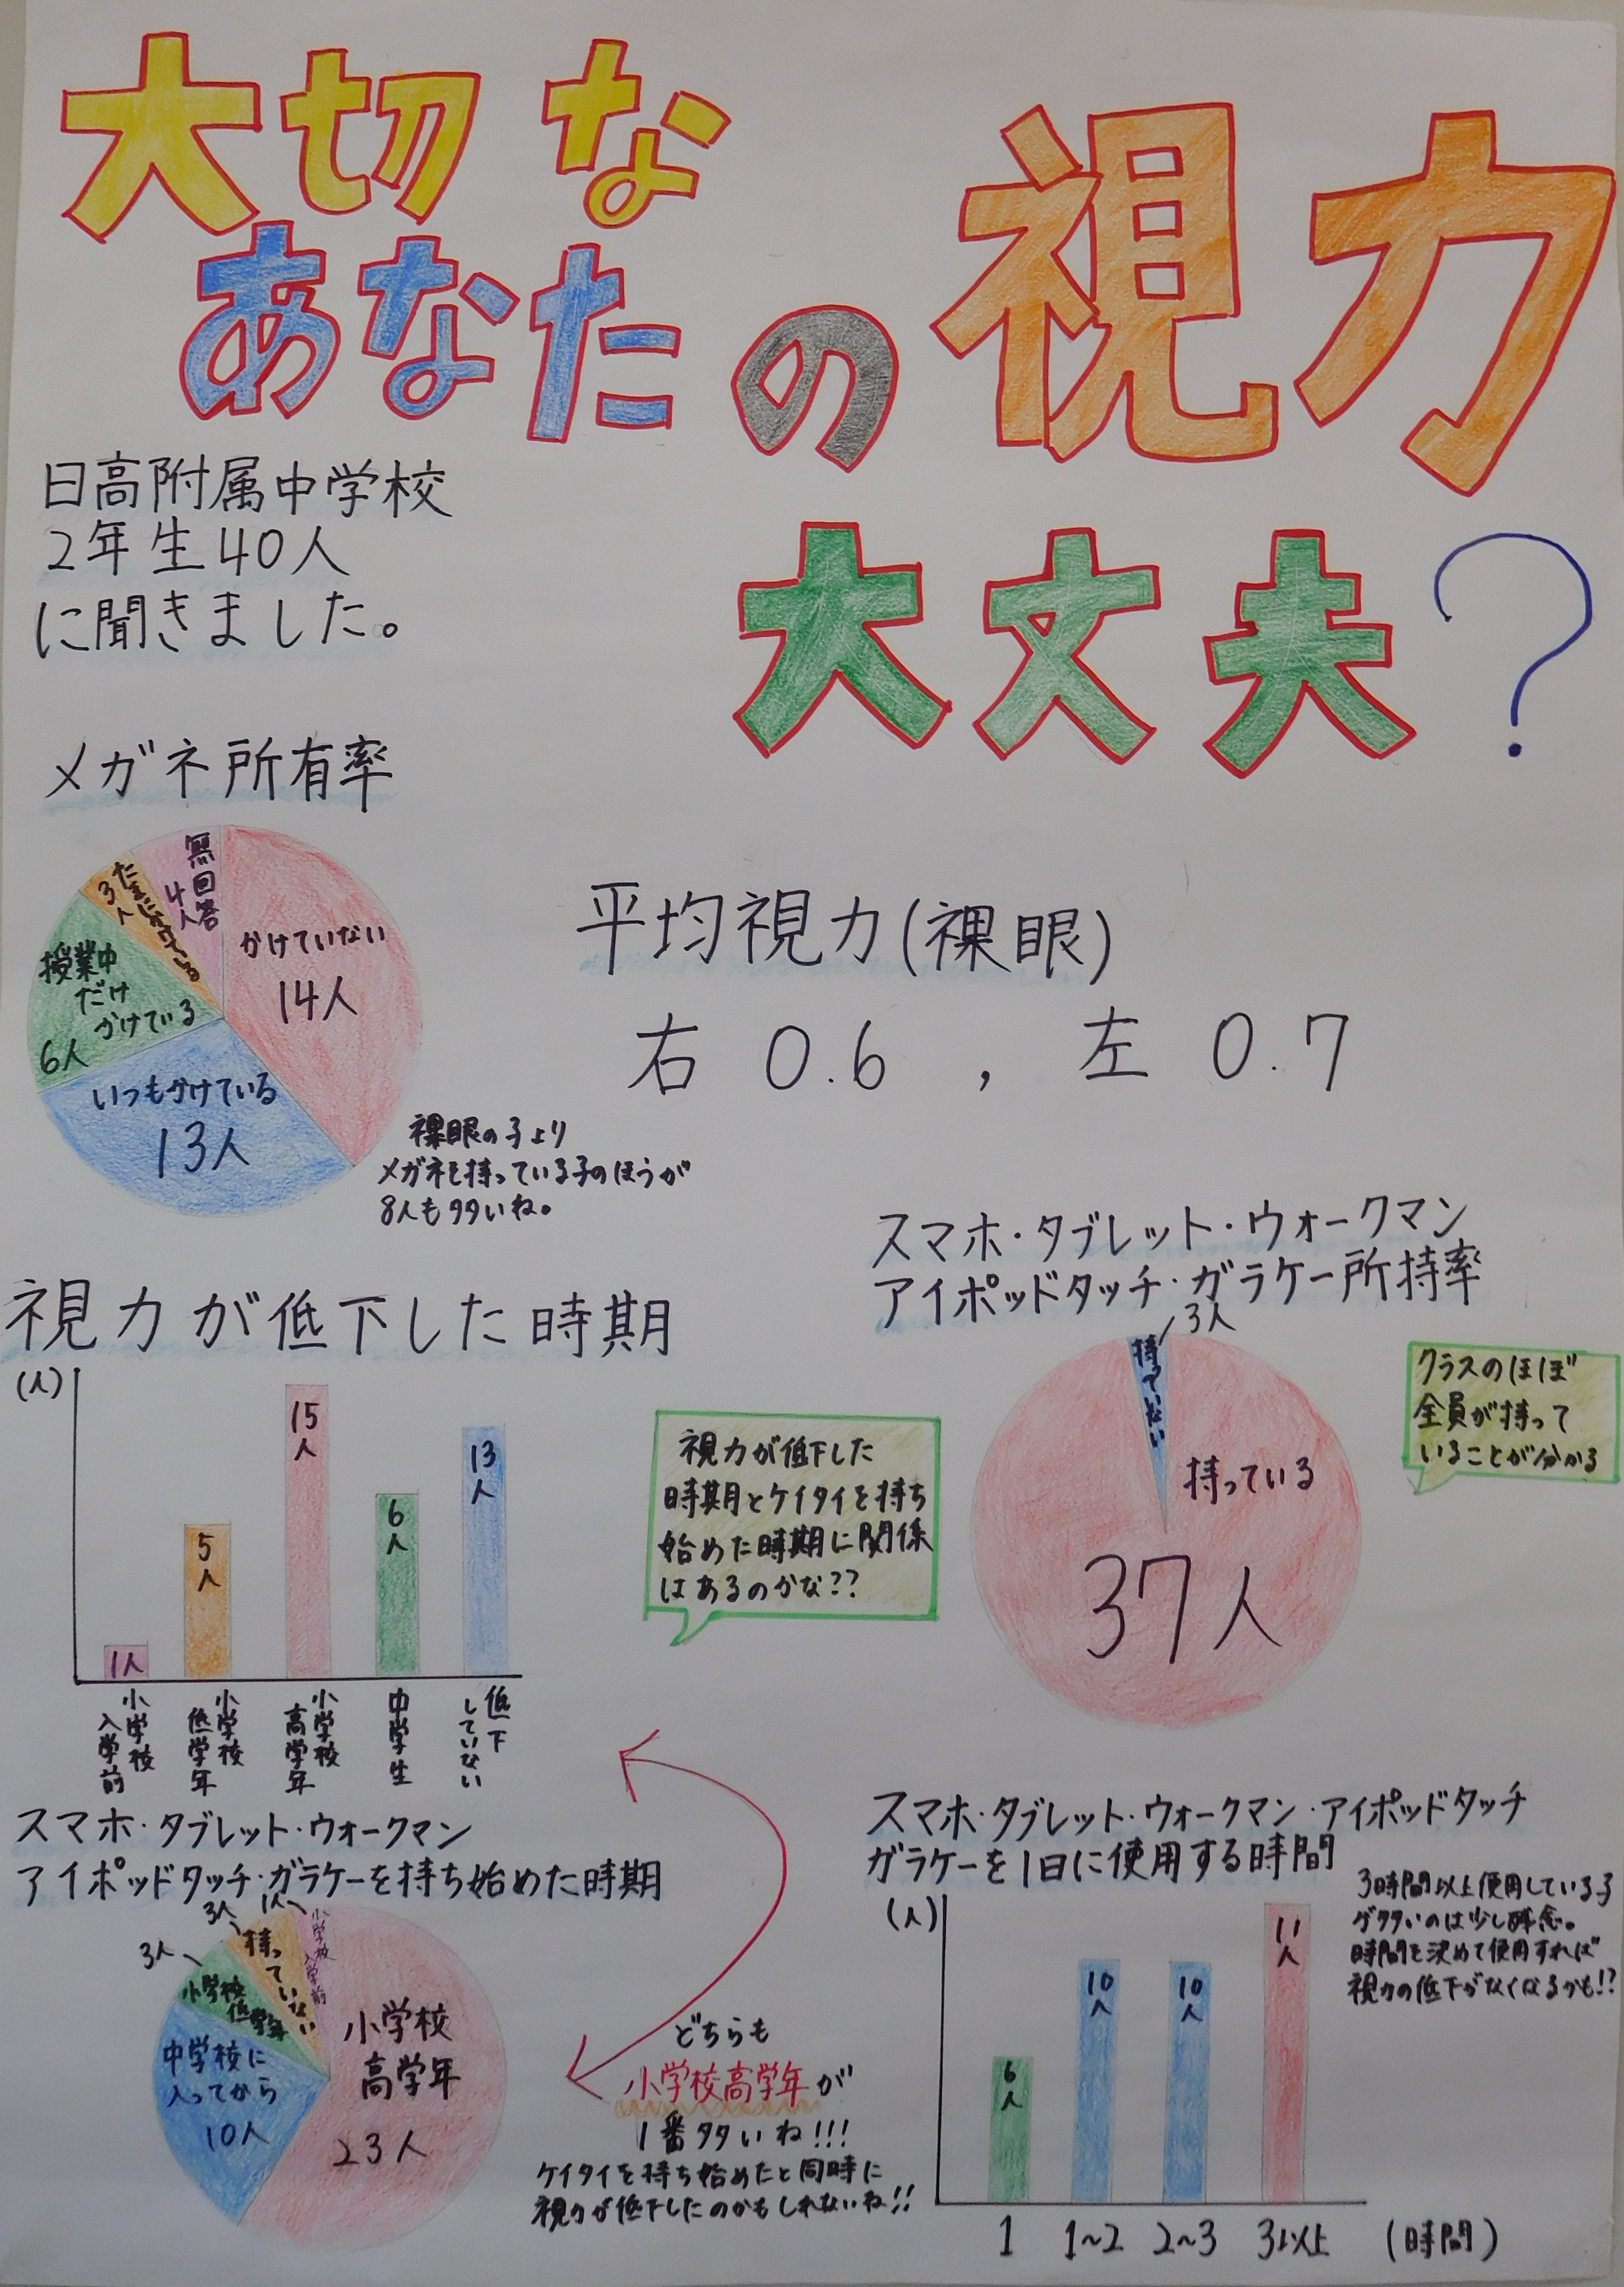 大切な
あなたの視力
大丈夫?
日高附属中学校
2年生40人
に聞きました。
メガネ所有率
無回答
4人
たまにかけている
3人
かけていない
14人
授業中
だけ
かけている
6人
いつもかけている
13人
裸眼の子より
メガネを持っている子のほうが
8人も多いね。
平均視力(裸眼)
右 0.6 , 左 0.7
視力が低下した時期
(人)
1人
5人
15人
6人
13人
小学校
入学前
小学校
低学年
小学校
高学年
中学生
低下
していない
視力が低下した
時期とケイタイを持ち
始めた時期に関係
はあるのかな??
スマホ・タブレット・ウォークマン
アイポッドタッチ・ガラケー所持率
3人
持っていない
持っている
37人
クラスのほぼ
全員が持って
いることが分かる
スマホ・タブレット・ウォークマン
アイポッドタッチ・ガラケーを持ち始めた時期
1人
小学校入学前
3人
持っていない
3人
小学校
低学年
中学校に
入ってから
10人
小学校
高学年
23人
どちらも
小学校高学年が
1番多いね!!!
ケイタイを持ち始めたと同時に
視力が低下したのかもしれないね!!
スマホ・タブレット・ウォークマン・アイポッドタッチ
ガラケーを1日に使用する時間
(人)
6人
10人
10人
11人
1 1~2 2~3 3以上 (時間)
3時間以上使用している子
が多いのは少し残念。
時間を決めて使用すれば
視力の低下がなくなるかも!?